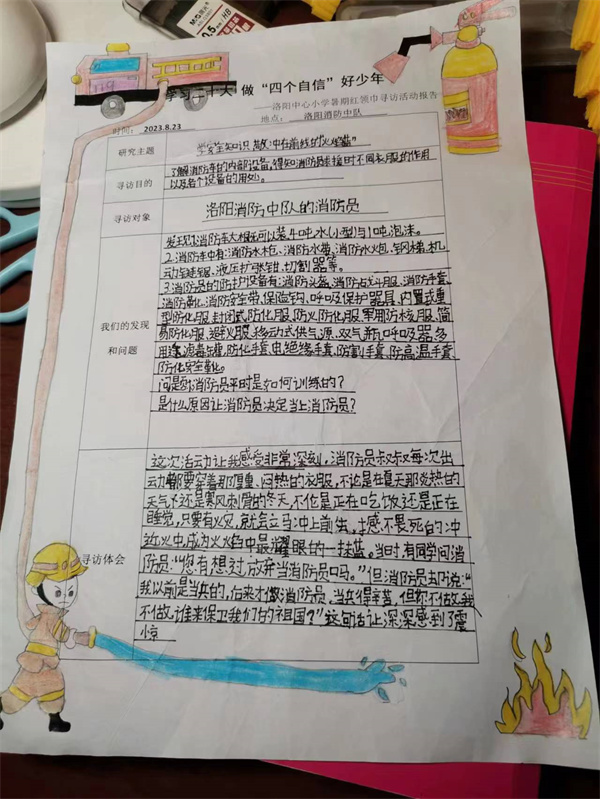 学习二十大 做“四个自信”好少年
——洛阳中心小学暑期红领巾寻访活动报告
时间： 2023.8.23 地点： 洛阳消防中队
研究主题 学安全知识 做冲在前线的“火焰蓝”
寻访目的 了解消防车的内部设备,得知消防员救援时不同衣服的作用
以及各个设备的用处。
寻访对象 洛阳消防中队的消防员
我们的发现
和问题
发现:1.消防车大概可以装4吨水(小型)与1吨泡沫。
2.消防车中有:消防水枪、消防水带、消防水炮、钢梯、机
动链锯、液压扩张钳、切割器等。
3.消防员的防护设备有:消防头盔、消防战斗服、消防手套、
消防靴、消防安全带、保险钩、呼吸保护器具、内置式重
型防化服,封闭式防化服、防火防化服、军用防核服、简
易防化服、避火服、移动式供气源、双气瓶呼吸器、多
用途滤毒罐,防化手套、电绝缘手套、防割手套、防高温手套、
防化安全靴。
问题:消防员平时是如何训练的?
是什么原因让消防员决定当上消防员?
寻访体会
这次活动让我感受非常深刻,消防员叔叔每次出
动都要穿着那厚重、闷热的衣服,不论是在夏天那炎热的
天气下还是寒风刺骨的冬天,不论是正在吃饭还是正在
睡觉,只要有火灾,就会立马冲上前线,
近火中,成为火焰中最耀眼的一抹蓝。当时,有同学问消
防员:“您有想过放弃当消防员吗。”但消防员却说:“
我以前是当兵的,后来才做消防员,当兵得辛苦,但你不做,我
不做,谁来保卫我们的祖国?”这句话让深深感到了震
惊